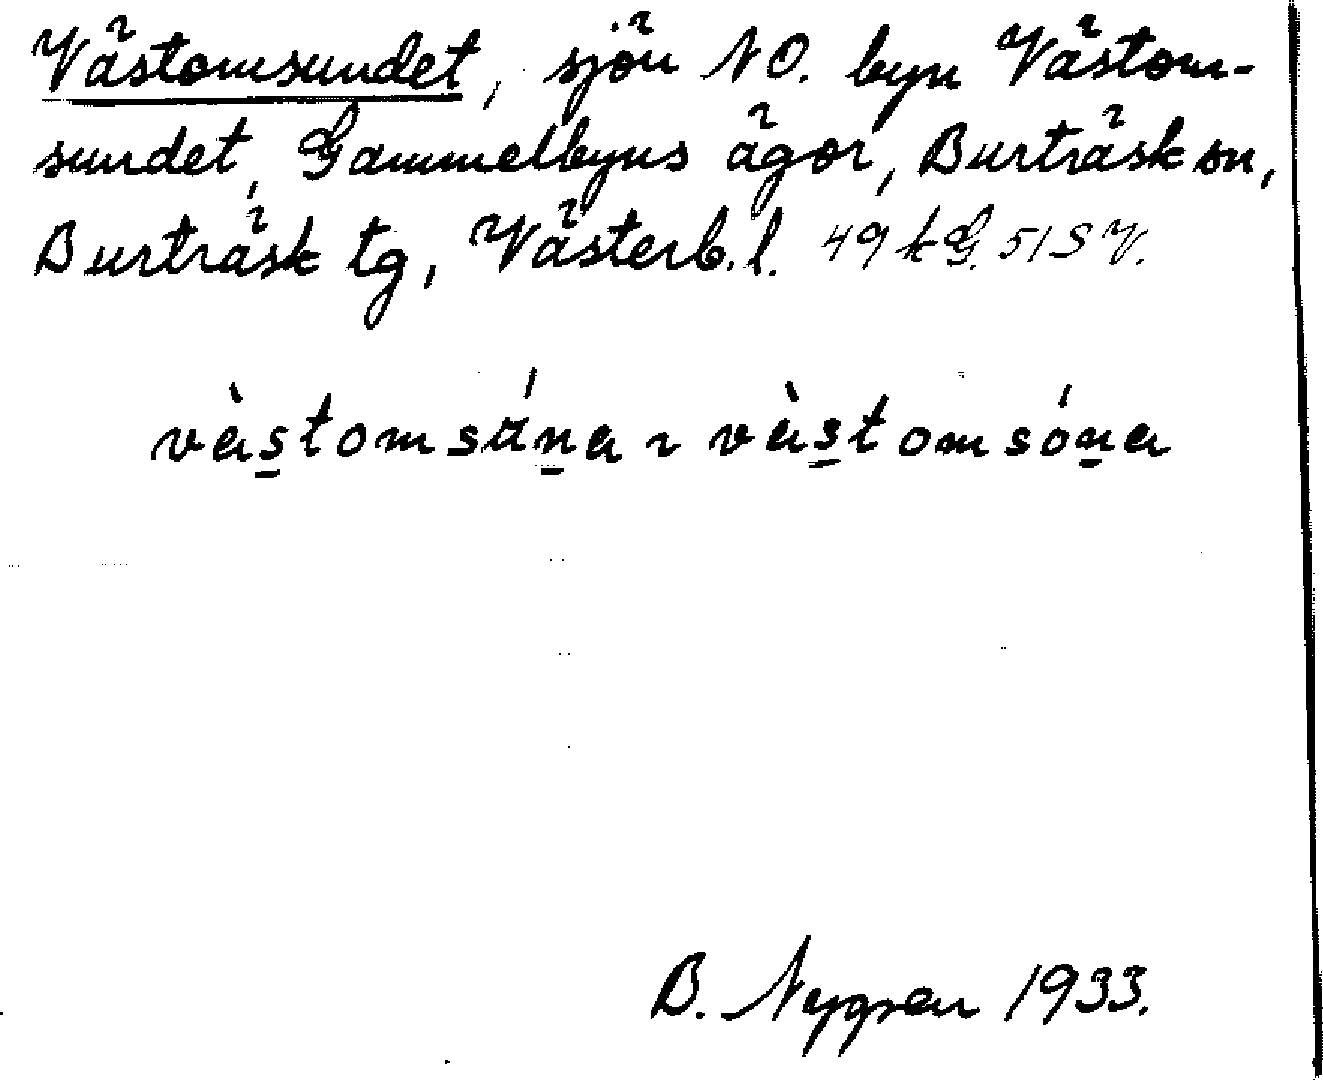 Västomsundet, sjön NO. byn Västom-
sundet, Gammelbyns ägor, Burträsk sn,
Burträsk tg, Västerb. l. 49 kG. 51 SV.
væ̀s̲tomsʉ́n̲a ~ væ̀s̲tomsón̲a
B. Nygren 1933.